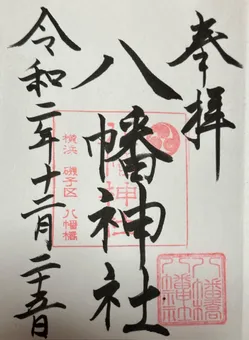 奉拝
八幡神社
横浜 磯子区 八幡橋
八幡橋
八幡神社
令和二年十二月二十五日